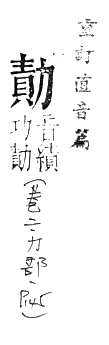 重訂直音篇
勣
音績
功勣
(卷二力部